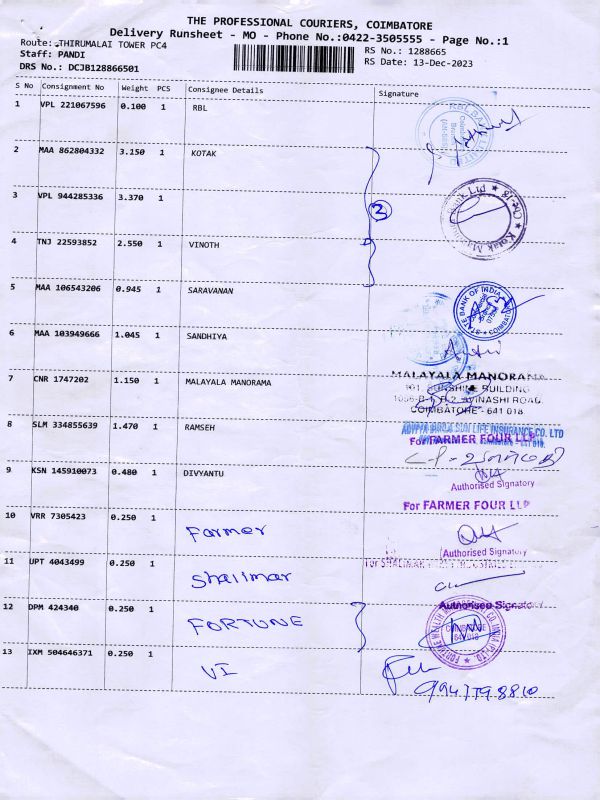 THE PROFESSIONAL COURIERS, COIMBATORE
Delivery Runsheet - MO - Phone No.:0422-3505555 - Page No.:1
Route: THIRUMALAI TOWER PC4
RS No.: 1288665
Staff: PANDI
RS Date: 13-Dec-2023
DRS No.: DCJB128866501
S No Consignment No Weight PCS Consignee Details Signature
1 VPL 221067596 0.100 1 RBL
2 MAA 862804332 3.150 1 KOTAK
3 VPL 944285336 3.370 1
3
4 TNJ 22593852 2.550 1 VINOTH
5 MAA 106543206 0.945 1 SARAVANAN
STATE BANK OF INDIA
6 MAA 103949666 1.045 1 SANDHIYA
MALAYALA MANORAMA
7 CNR 1747202 1.150 1 MALAYALA MANORAMA
COIMBATORE - 641 018
8 SLM 334855639 1.470 1 RAMSEH
For FARMER FOUR LLP
9 KSN 145910073 0.480 1 DIVYANTU
Authorised Signatory
For FARMER FOUR LLP
10 VRR 7305423 0.250 1 Farmer
Authorised Signatory
11 UPT 4043499 0.250 1 Shalimar
Authorised Signatory
12 DPM 424340 0.250 1 FORTUNE
COIMBATORE
641 018
13 IXM 504646371 0.250 1 VI